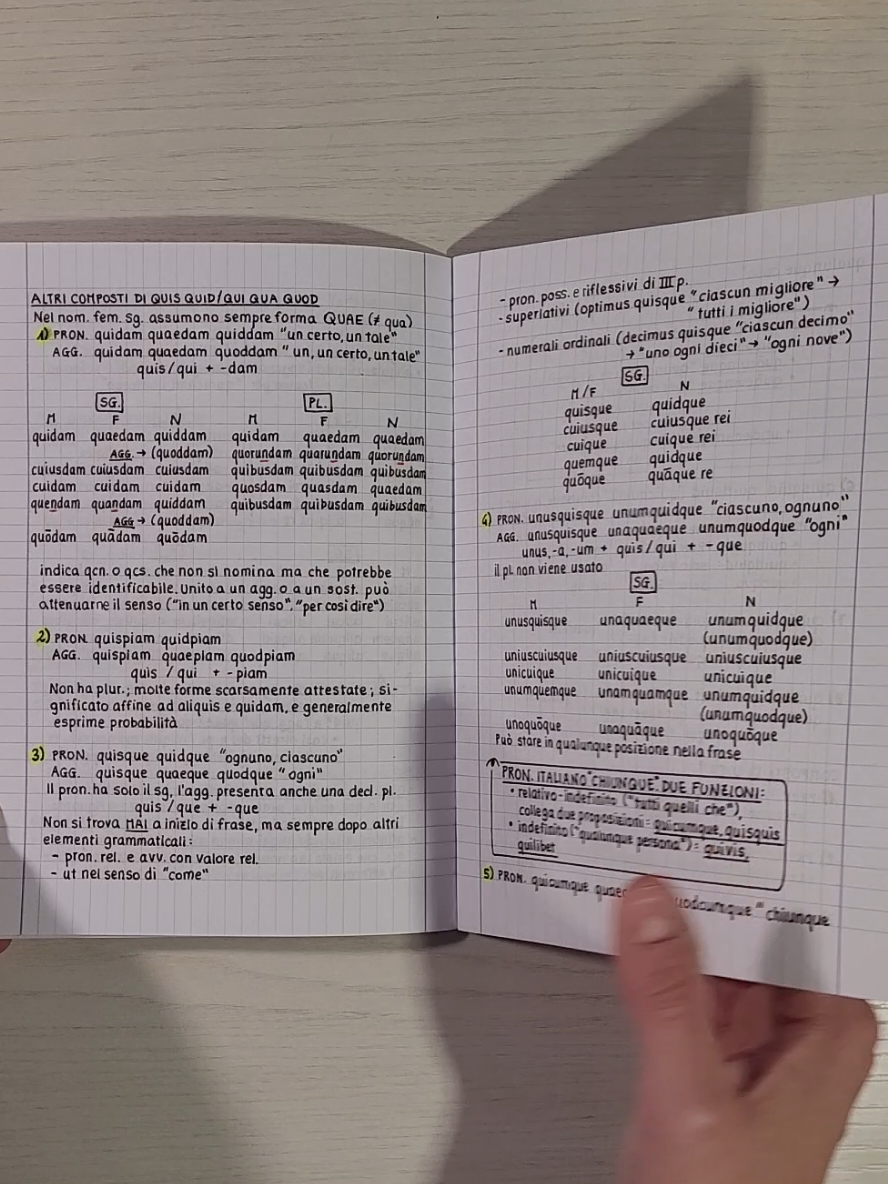 ALTRI COMPOSTI DI QUIS QUID/QUI QUA QUOD
Nel nom. fem. sg. assumono sempre forma QUAE (≠ qua)
1) PRON. quidam quaedam quiddam "un certo, un tale"
AGG. quidam quaedam quoddam "un, un certo, un tale"
quis/qui + -dam
SG. PL.
M F N M F N
quidam quaedam quiddam quidam quaedam quaedam
AGG. → (quoddam) quorundam quarundam quorundam
cuiusdam cuiusdam cuiusdam quibusdam quibusdam quibusdam
cuidam cuidam cuidam quosdam quasdam quaedam
quendam quandam quiddam quibusdam quibusdam quibusdam
AGG → (quoddam)
quōdam quādam quōdam
indica qcn. o qcs. che non si nomina ma che potrebbe
essere identificabile. Unito a un agg. o a un sost. può
attenuarne il senso ("in un certo senso", "per così dire")
2) PRON. quispiam quidpiam
AGG. quispiam quaepiam quodpiam
quis / qui + -piam
Non ha plur.; molte forme scarsamente attestate; si-
gnificato affine ad aliquis e quidam, e generalmente
esprime probabilità
3) PRON. quisque quidque "ognuno, ciascuno"
AGG. quisque quaeque quodque "ogni"
Il pron. ha solo il sg, l'agg. presenta anche una decl. pl.
quis / que + -que
Non si trova MAI a inizio di frase, ma sempre dopo altri
elementi grammaticali:
- pron. rel. e avv. con valore rel.
- ut nel senso di "come"
- pron. poss. e riflessivi di III p.
- superlativi (optimus quisque "ciascun migliore" →
"tutti i migliore")
- numerali ordinali (decimus quisque "ciascun decimo"
→ "uno ogni dieci" → "ogni nove")
SG.
M/F N
quisque quidque
cuiusque cuiusque rei
cuique cuique rei
quemque quidque
quōque quāque re
4) PRON. unusquisque unumquidque "ciascuno, ognuno"
AGG. unusquisque unaquaeque unumquodque "ogni"
unus, -a, -um + quis/qui + -que
il pl. non viene usato
SG.
M F N
unusquisque unaquaeque unumquidque
(unumquodque)
uniuscuiusque uniuscuiusque uniuscuiusque
unicuique unicuique unicuique
unumquemque unamquamque unumquidque
(unumquodque)
unoquōque unaquāque unoquōque
Può stare in qualunque posizione nella frase
PRON. ITALIANO "CHIUNQUE": DUE FUNZIONI:
• relativo-indefinito ("tutti quelli che"),
collega due proposizioni = quicumque, quisquis
• indefinito ("qualunque persona") = quivis,
quilibet
5) PRON. quicumque "chiunque